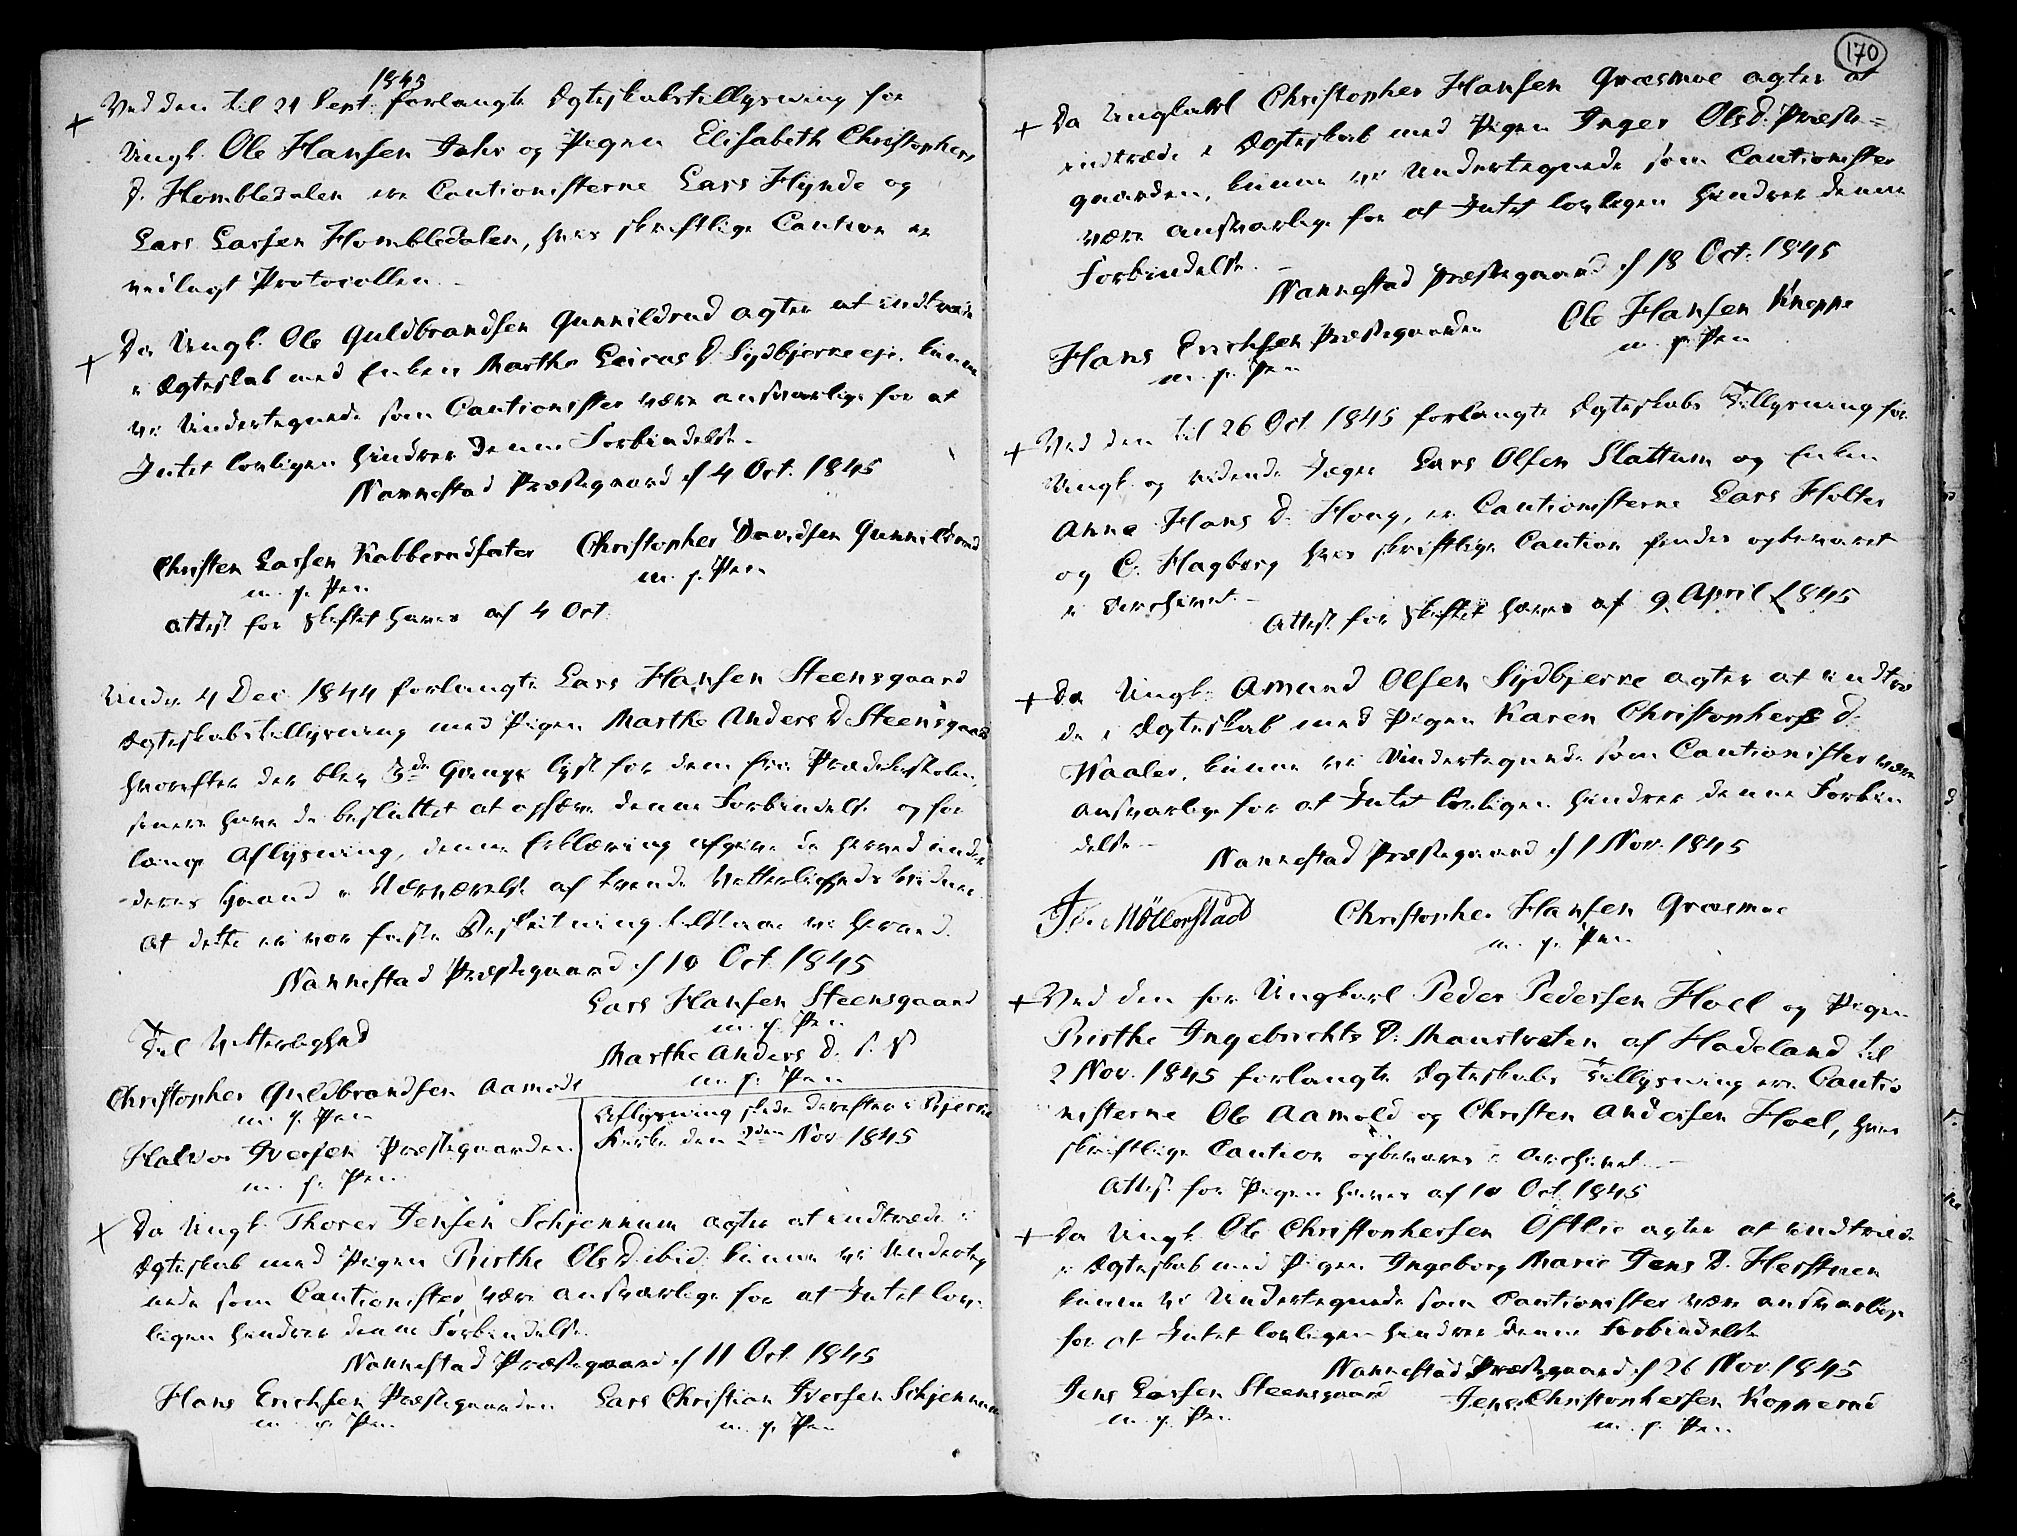 1845
+ Ved den til 21 Sept. forlangte Ægteskabstillysning for
Ungk. Ole Hansen Jahr og Pigen Elisabeth Christophers
D. Hombledalen ere Cautionisterne Lars Flynde og
Lars Larsen Hombledalen, hvis skriftlige Caution er
vedlagt Protocollen.
+ Da Ungk. Ole Guldbrandsen Gunnildrud agter at indtræde
i Ægteskab med Enken Marthe Leivas D. Sydbjerke eje, kunne
vi Undertegnede som Cautionister være ansvarlige for at
Intet lovligen hindrer denne Forbindelse.
Nannestad Præstegaard d 4 Oct. 1845
Christen Larsen Kabberudsæter Christopher Davidsen Gunnildrud
m. p. Pen m. p. Pen
Attest for Skiftet haves af 4 Oct.
Under 4 Dec 1844 forlangte Lars Hansen Steensgaard
Ægteskabstillysning med Pigen Marthe Anders D. Steensgaard
hvorefter der blev 3de Gange lyst for dem fra Prædikestolen,
senere have de besluttet at ophæve denne Forbindelse og for
lange Aflysning, denne Erklæring afgive de herved under
deres Haand i Nærværelse af tvende Vitterligheds Vidner.
At dette er vor faste Beslutning tilstaae vi herved.
Nannestad Præstegaard d 10 Oct. 1845
Lars Hansen Steensgaard
m. p. Pen
Til Vitterlighed
Marthe Anders D. S. V
m. p. Pen
Christopher Guldbrandsen Aamodt
m. p. Pen
Halvor Iversen Præstegaarden
m. p. Pen
Aflysning skede derefter i Bjerke
Kirke den 2den Nov 1845
+ Da Ungk. Thorer Jensen Schjennum agter at indtræde i
Ægteskab med Pigen Birthe Ols D. ibid. kunne vi Underteg
nede som Cautionister være ansvarlige for at Intet lov-
ligen hindrer denne Forbindelse.
Nannestad Præstegaard d 11 Oct. 1845
Hans Erichsen Præstegaarden Lars Christian Iversen Schjennum
m. p. Pen m. p. Pen
170
+ Da Ungkarl Christopher Hansen Græsmoe agter at
indtræde i Ægteskab med Pigen Inger Ols D. Præste=
gaarden, kunne vi Undertegnede som Cautionister
være ansvarlige for at Intet lovligen hindrer denne
Forbindelse.
Nannestad Præstegaard d 18 Oct. 1845
Hans Erichsen Præstegaarden Ole Hansen Kneppe
m. p. Pen m. p. Pen
+ Ved den til 26 Oct. 1845 forlangte Ægteskabs Tillysning for
Ungk. og ridende Jæger Lars Olsen Slattum og Enken
Anne Hans D. Houg, er Cautionisterne Lars Holter
og C. Hagborg hvis skriftlige Caution findes opbevaret
i Archivet.
Attest for Skiftet haves af 9 April 1845
+ Da Ungk. Amund Olsen Sydbjerke agter at indtræ
de i Ægteskab med Pigen Karen Christophers D.
Waaler, kunne vi Undertegnede som Cautionister være
ansvarlige for at Intet lovligen hindrer denne Forbin
delse
Nannestad Præstegaard d 1 Nov. 1845
Möllerstad Christopher Hansen Græsmoe
m. p. Pen
+ Ved den for Ungkarl Peder Pedersen Hoel og Pigen
Birthe Ingebrichts D. Maustveten af Hadeland til
2 Nov. 1845 forlangte Ægteskabs Tillysning ere Cautio
nisterne Ole Aamold og Christen Andersen Hoel, hvis
skriftlige Caution opbevares i Archivet.
Attest for Pigen haves af 10 Oct. 1845
+ Da Ungk. Ole Christophersen Östlie agter at indtræde
i Ægteskab med Pigen Ingeborg Marie Jens D. Herstuen
kunne vi Undertegnede som Cautionister være ansvarlige
for at Intet lovligen hindrer denne Forbindelse
Nannestad Præstegaard d 26 Nov. 1845
Jens Larsen Steensgaard Jens Christophersen Kopperud
m. p. Pen m. p. Pen